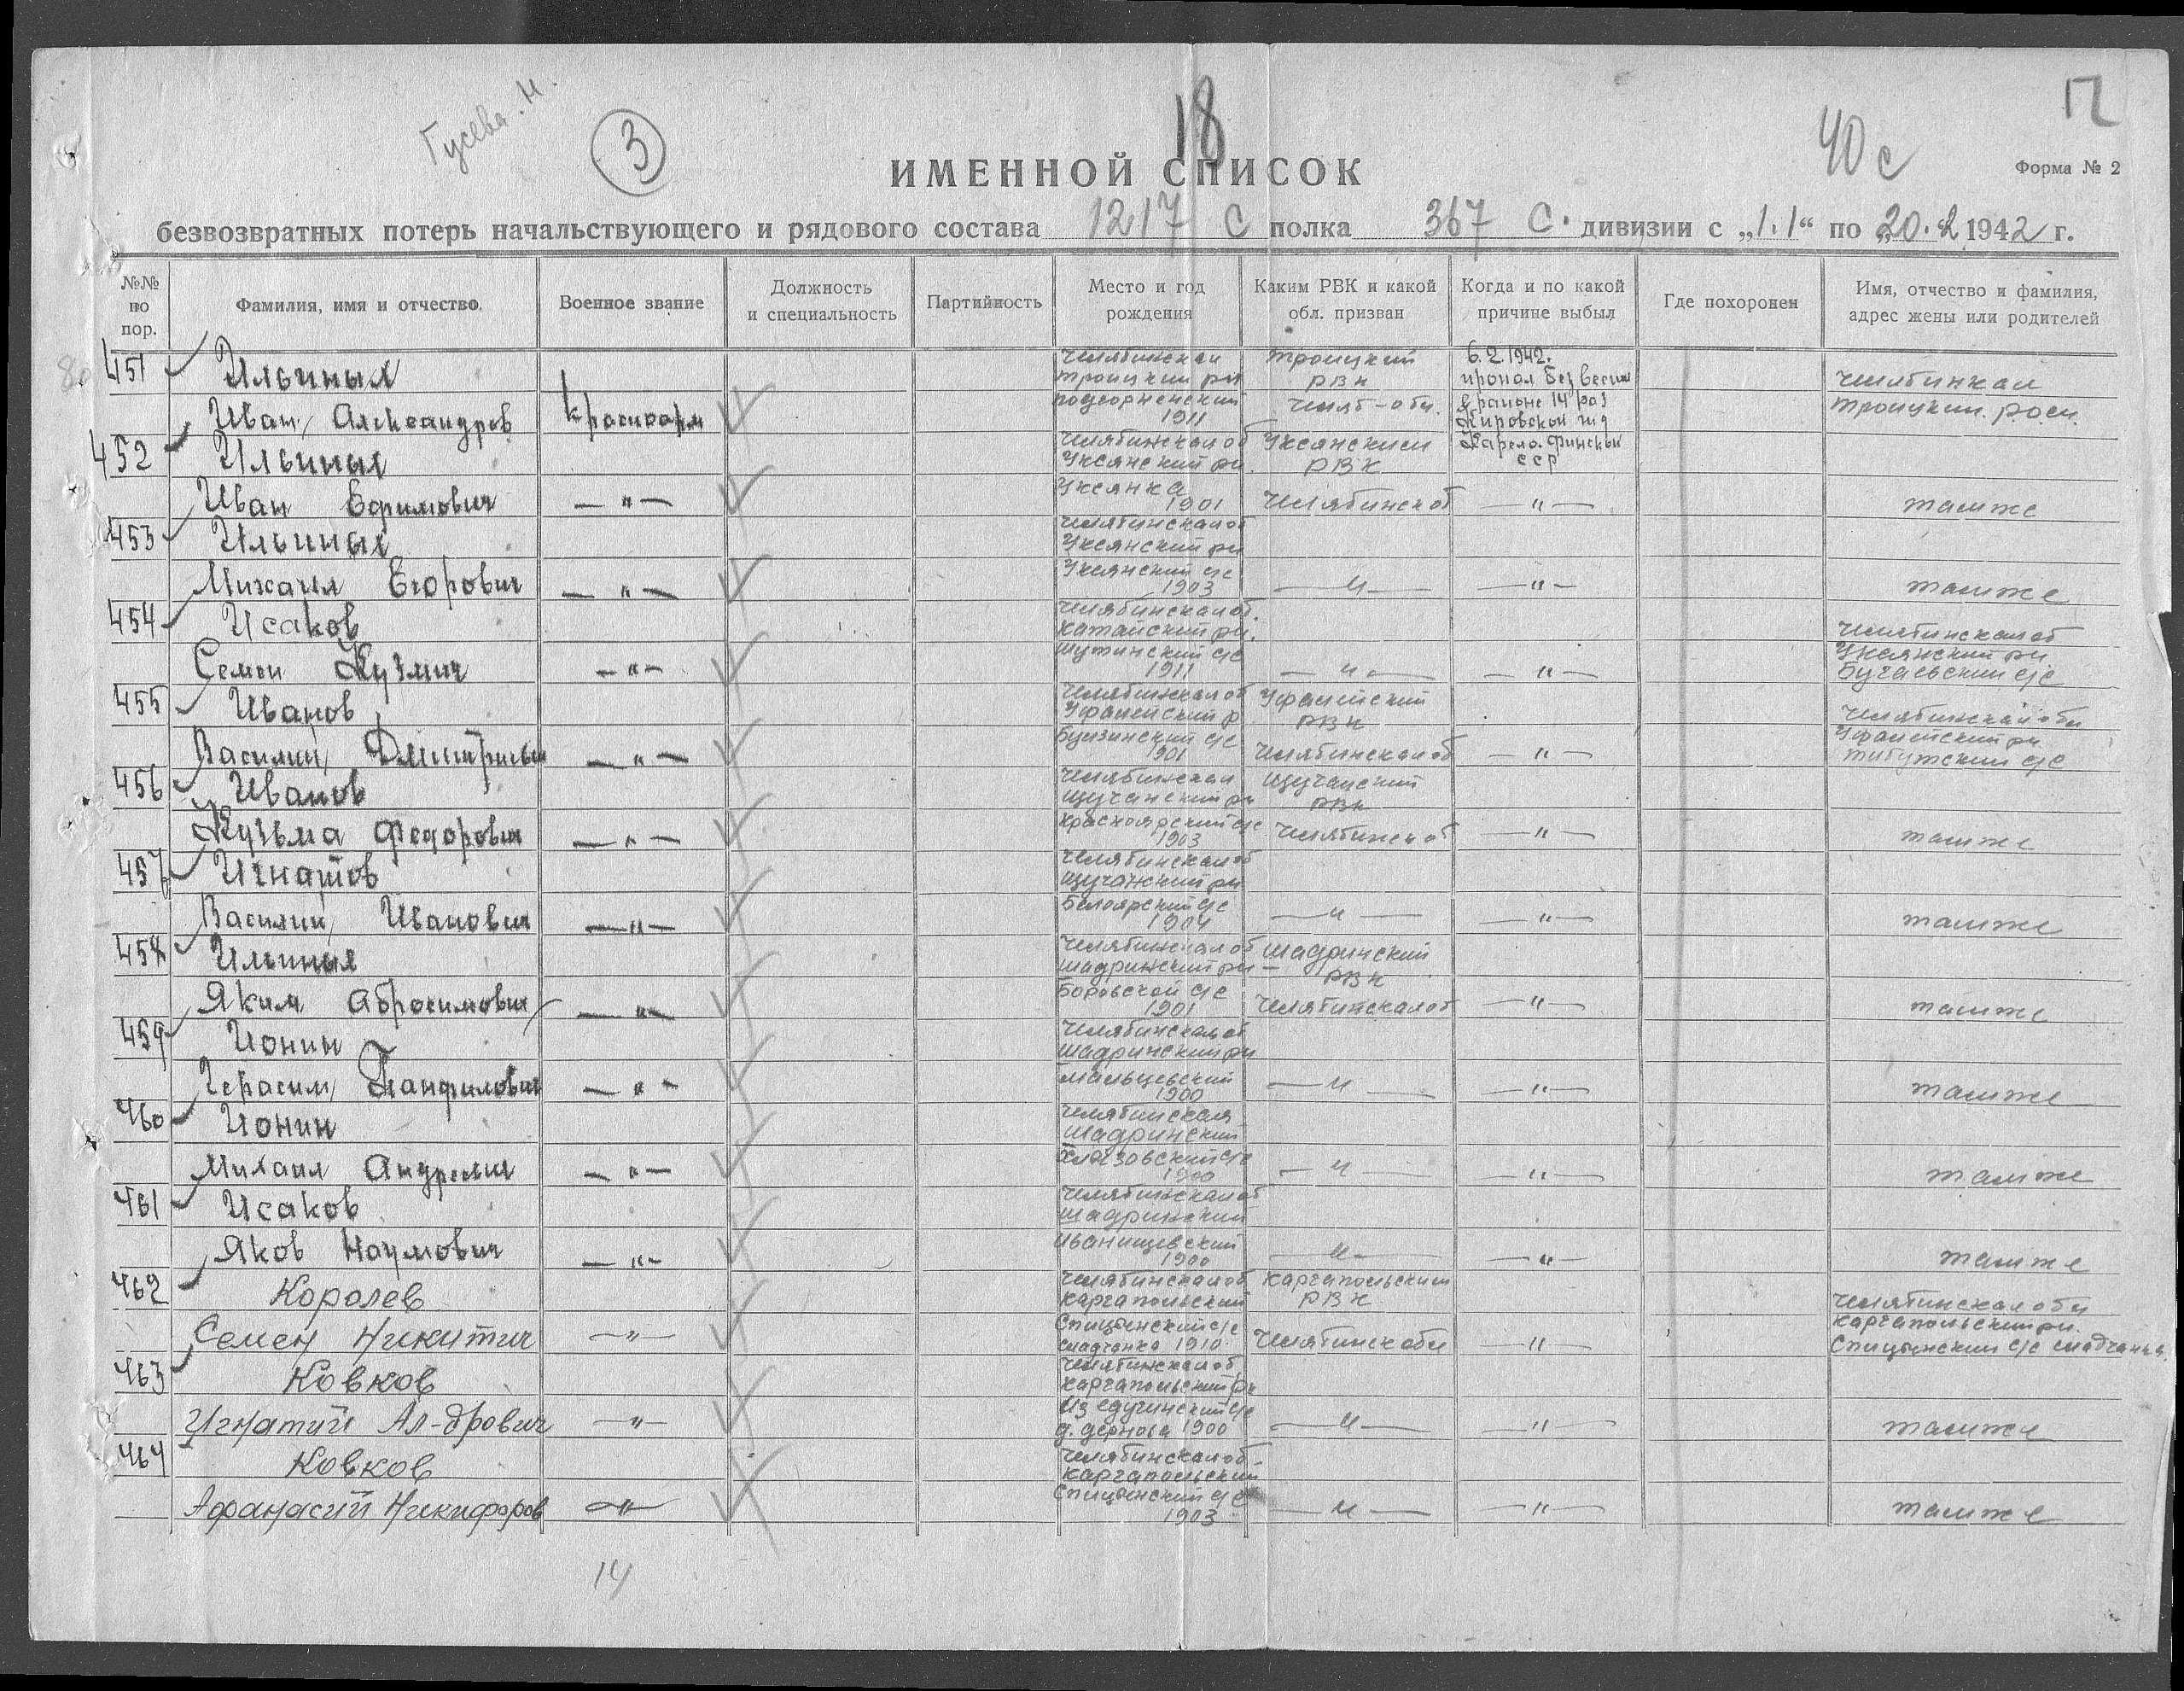 Гусева. Н.
3
18
40 с
12
ИМЕННОЙ СПИСОК
Форма № 2
безвозвратных потерь начальствующего и рядового состава 1217 С полка 367 С. дивизии с „1.1“ по „20.2 1942 г.
№№ по пор.
Фамилия, имя и отчество.
Военное звание
Должность и специальность
Партийность
Место и год рождения
Каким РВК и какой обл. призван
Когда и по какой причине выбыл
Где похоронен
Имя, отчество и фамилия, адрес жены или родителей
451 Ильиных
Иван Александров Красноарм
Челябинская
Троицкий рн
1911
Троицкий
РВК
Челяб-обл.
6.2.1942.
пропал без вести
в районе 14 раз
Кировской жд
Карело-Финской
ССР
Челябинкая
Троицкий. 
452 Ильиных
Иван Ефимович — " —
Челябинская об
Уксянский рн.
Уксянка
1901
Уксянский
РВК
Челябинск об
— " —
тамже
453 Ильиных
Михаил Егорович — " —
Челябинская об
Уксянский рн
Уксянский с/с
1903
— " —
— " —
тамже
454 Исаков
Семен Кузмич — " —
Челябинская об.
Катайский рн.
Шутинский с/с
1911
— " —
— " —
Челябинская об
Уксянский рн
Бугаевский с/с
455 Иванов
Василий Дмитриевич — " —
Челябинская об
1901
РВК
Челябинская об
— " —
Челябинская обл
456 Иванов
Кузьма Федорович — " —
Челябинская
Щучанский рн
Красноярский с/с
1903
Щучанский
РВК
Челябинск об
— " —
тамже
457 Игнатов
Василий Иванович — " —
Челябинская об
Щучанский рн
Белоярский с/с
1904
— " —
— " —
тамже
458 Ильиных
Яким Абросимович — " —
Челябинская об
Шадринский рн
Боровской с/с
1901
Шадринский
РВК
Челябинская об
— " —
тамже
459 Ионин
Герасим Панфилович — " —
Челябинская об
Шадринский рн
Мальцевский
1900
— " —
— " —
тамже
460 Ионин
Михаил Андреевич — " —
Челябинская
Шадринский
1900
— " —
— " —
тамже
461 Исаков
Яков Наумович — " —
Челябинская об
Шадринский
Иванищевский
1900
— " —
— " —
тамже
462 Королев
Семен Никитич — " —
Челябинская об
Каргапольский
Спицынский с/с
1910
Каргапольский
РВК
Челябинск обл
— " —
Челябинская обл
Каргапольский рн.
Спицынский с/с
463 Ковков
Игнатий Ал-дрович — " —
Челябинская об
Каргапольский рн
1900
— " —
— " —
тамже
464 Ковков
Афанасий Никифоров — " —
Челябинская об-
Каргапольский
Спицынский с/с
1903
— " —
— " —
тамже
14